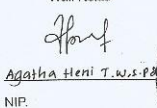 Agatha Heni T.W.S.Pd
NIP.